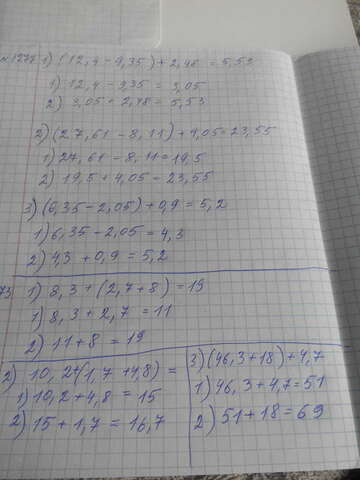 №1277 1) (12,4 - 9,35) + 2,48 = 5,53
1) 12,4 - 9,35 = 3,05
2) 3,05 + 2,48 = 5,53
2) (27,61 - 8,11) + 4,05 = 23,55
1) 27,61 - 8,11 = 19,5
2) 19,5 + 4,05 - 23,55
3) (6,35 - 2,05) + 0,9 = 5,2
1) 6,35 - 2,05 = 4,3
2) 4,3 + 0,9 = 5,2
73 1) 8,3 + (2,7 + 8) = 19
1) 8,3 + 2,7 = 11
2) 11 + 8 = 19
2) 10,2 + (1,7 + 4,8) =
1) 10,2 + 4,8 = 15
2) 15 + 1,7 = 16,7
3) (46,3 + 18) + 4,7
1) 46,3 + 4,7 = 51
2) 51 + 18 = 69